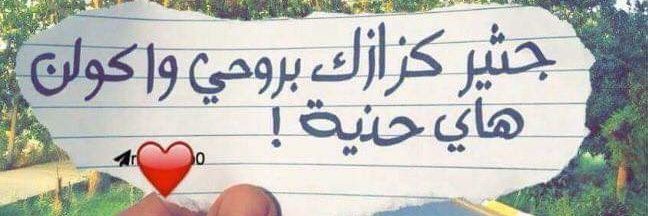 جثير كزازك بروحي واكولن
هاي حنية !